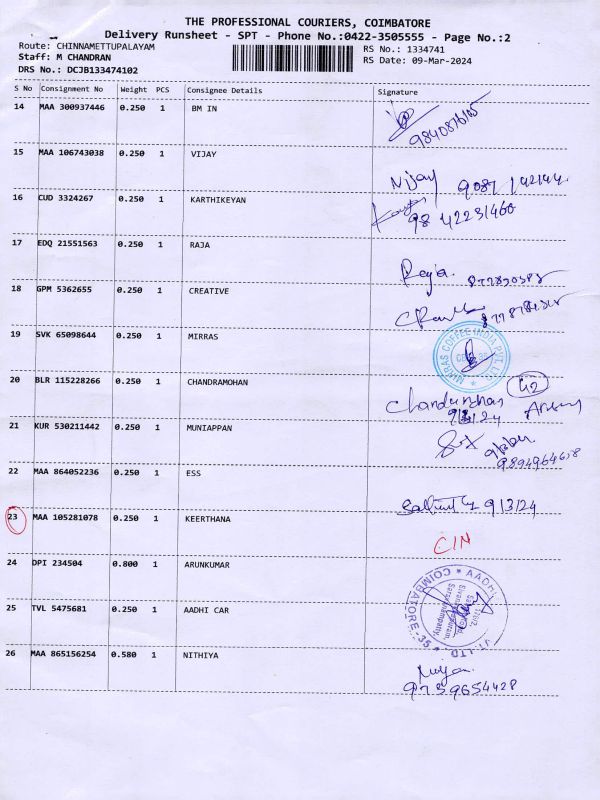 THE PROFESSIONAL COURIERS, COIMBATORE
Delivery Runsheet - SPT - Phone No.:0422-3505555 - Page No.:2
Route: CHINNAMETTUPALAYAM RS No.: 1334741
Staff: M CHANDRAN RS Date: 09-Mar-2024
DRS No.: DCJB133474102
S No Consignment No Weight PCS Consignee Details Signature
14 MAA 300937446 0.250 1 BM IN
15 MAA 106743038 0.250 1 VIJAY
16 CUD 3324267 0.250 1 KARTHIKEYAN
98 42231460
17 EDQ 21551563 0.250 1 RAJA
Raja
18 GPM 5362655 0.250 1 CREATIVE
19 SVK 65098644 0.250 1 MIRRAS
MIRRAS COFFEE INDIA PVT. LTD.
20 BLR 115228266 0.250 1 CHANDRAMOHAN
42
9/3/24
21 KUR 530211442 0.250 1 MUNIAPPAN
22 MAA 864052236 0.250 1 ESS
9/3/24
23 MAA 105281078 0.250 1 KEERTHANA
C/N
24 DPI 234504 0.800 1 ARUNKUMAR
COIMBATORE-35 * AADHI
25 TVL 5475681 0.250 1 AADHI CAR
26 MAA 865156254 0.580 1 NITHIYA
9759654428